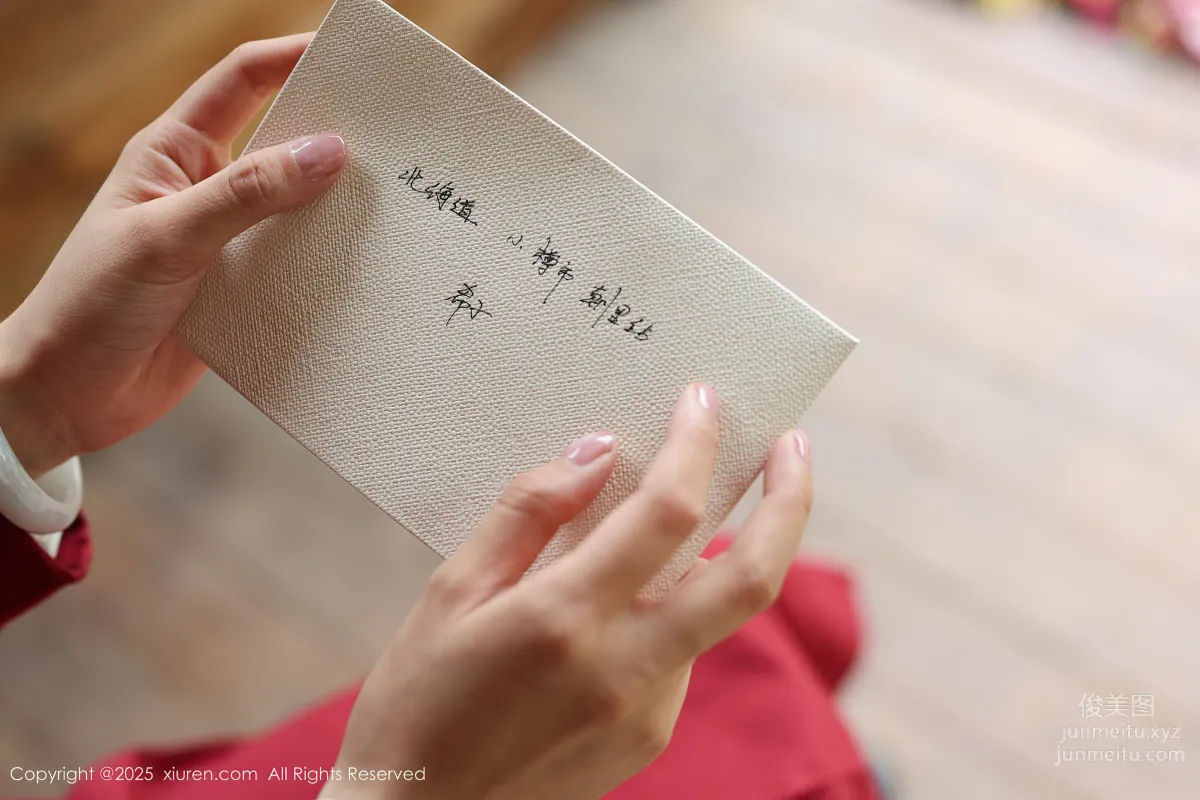 北海道 小樽市 朝里站
希子
俊美图
junmeitu.xyz
junmeitu.com
Copyright @2025 xiuren.com All Rights Reserved